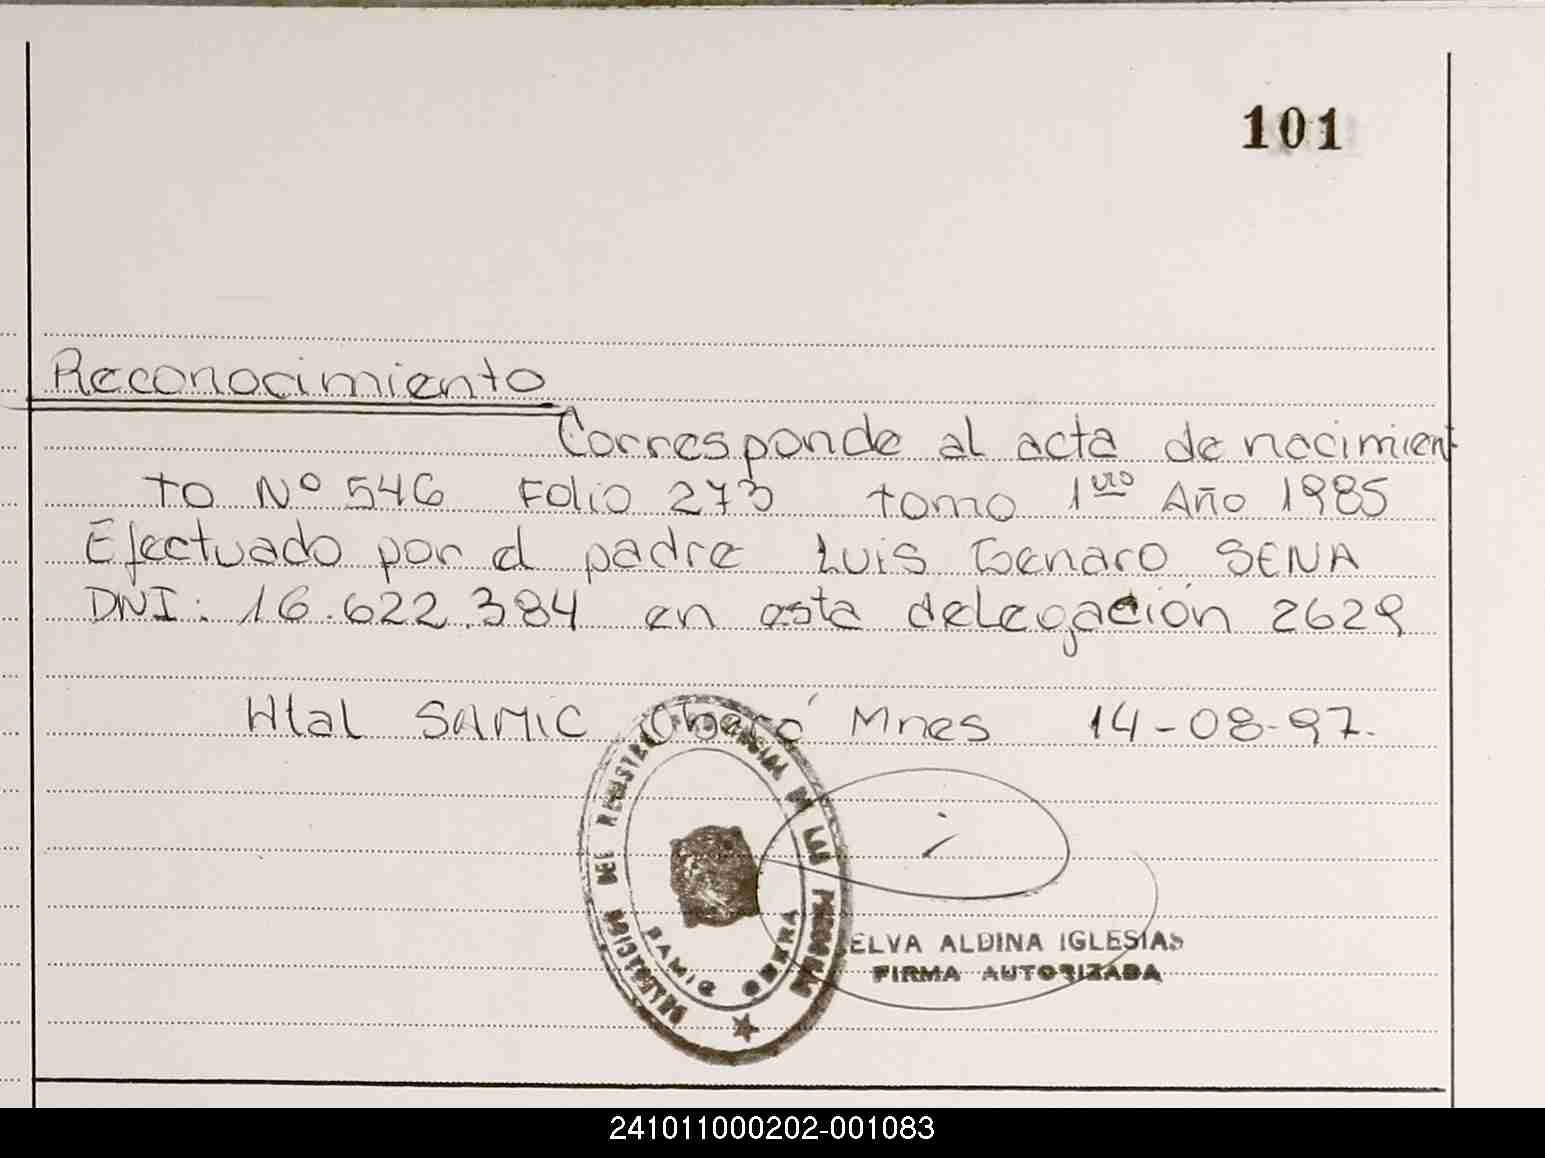 101
Reconocimiento
Corresponde al acta de nacimien
to Nº 546 Folio 273 tomo 1ero Año 1985
Efectuado por el padre Luis Genaro SENA
DNI: 16.622.384 en esta delegación 2629
Htal SAMIC Oberá Mnes 14-08-97.
DELEGACION DEL REGISTRO PROVINCIAL DE LAS PERSONAS
SAMIC OBERA
ELVA ALDINA IGLESIAS
FIRMA AUTORIZADA
241011000202-001083